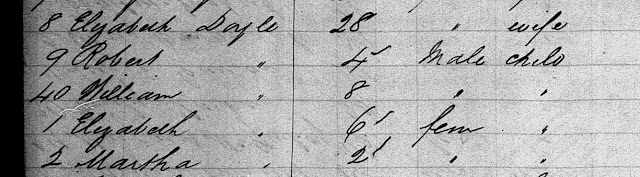 8 Elizabeth Doyle 28 " wife
9 Robert " 4 Male child
40 William " 8 " "
1 Elizabeth " 6 fem "
2 Martha " 2 " "